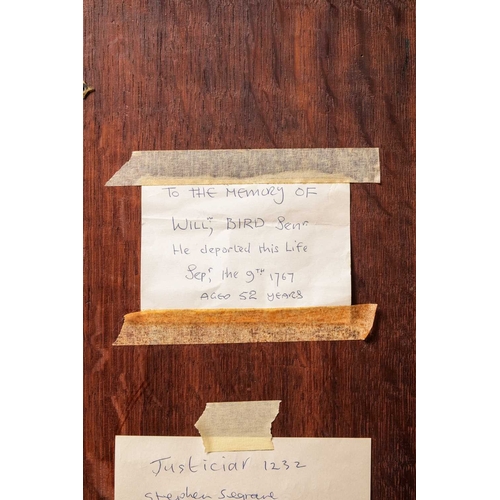 TO THE MEMORY OF
WILLᵐ; BIRD Senʳ
He departed this Life
Sepʳ; the 9ᵀᴴ 1767
AGED 52 YEARS
Justiciar 1232
Stephen Segrave